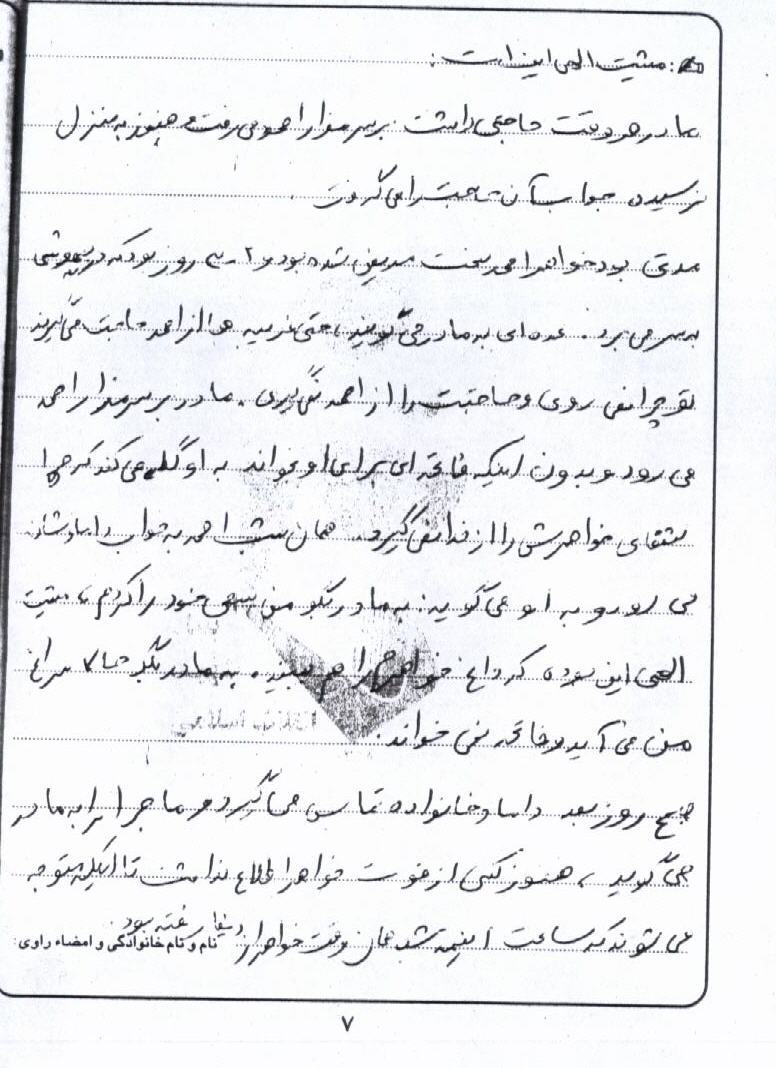 مشیت الهی این است:
مادر هر وقت حاجتی داشت بر سر مزار احمد می رفت و هنوز به منزل
نرسیده جواب آن حاجت را می گرفت.
مدتی بود خواهر احمد سخت مریض شده بود و ۲-۳ روز بود که در بیهوشی
به سر می برد. عده ای به مادر می گویند، حتی غریبه ها از احمد حاجت می گیرند
تو چرا نمی روی و حاجتت را از احمد نمی گیری. مادر بر سر مزار احمد
می رود و بدون اینکه فاتحه ای برای او بخواند به او گله می کند که چرا
شفای خواهرش را از خدا نمی گیرد. همان شب احمد به خواب دامادشان
می رود و به او می گوید: به مادر بگو من سعی خود را کردم، مشیت
الهی این بوده که داغ خواهرم را هم ببیند. به مادر بگو شما سراغ
من می آید و فاتحه نمی خواند.
صبح روز بعد داماد خانواده تماس می گیرد و ماجرا را به مادر
می گوید، هنوز کسی از فوت خواهر اطلاع نداشت تا اینکه متوجه
می شوند که ساعت ۱ نیمه شب همان وقت خواهر از دنیا رفته بود.
نام و نام خانوادگی و امضاء راوی:
۷